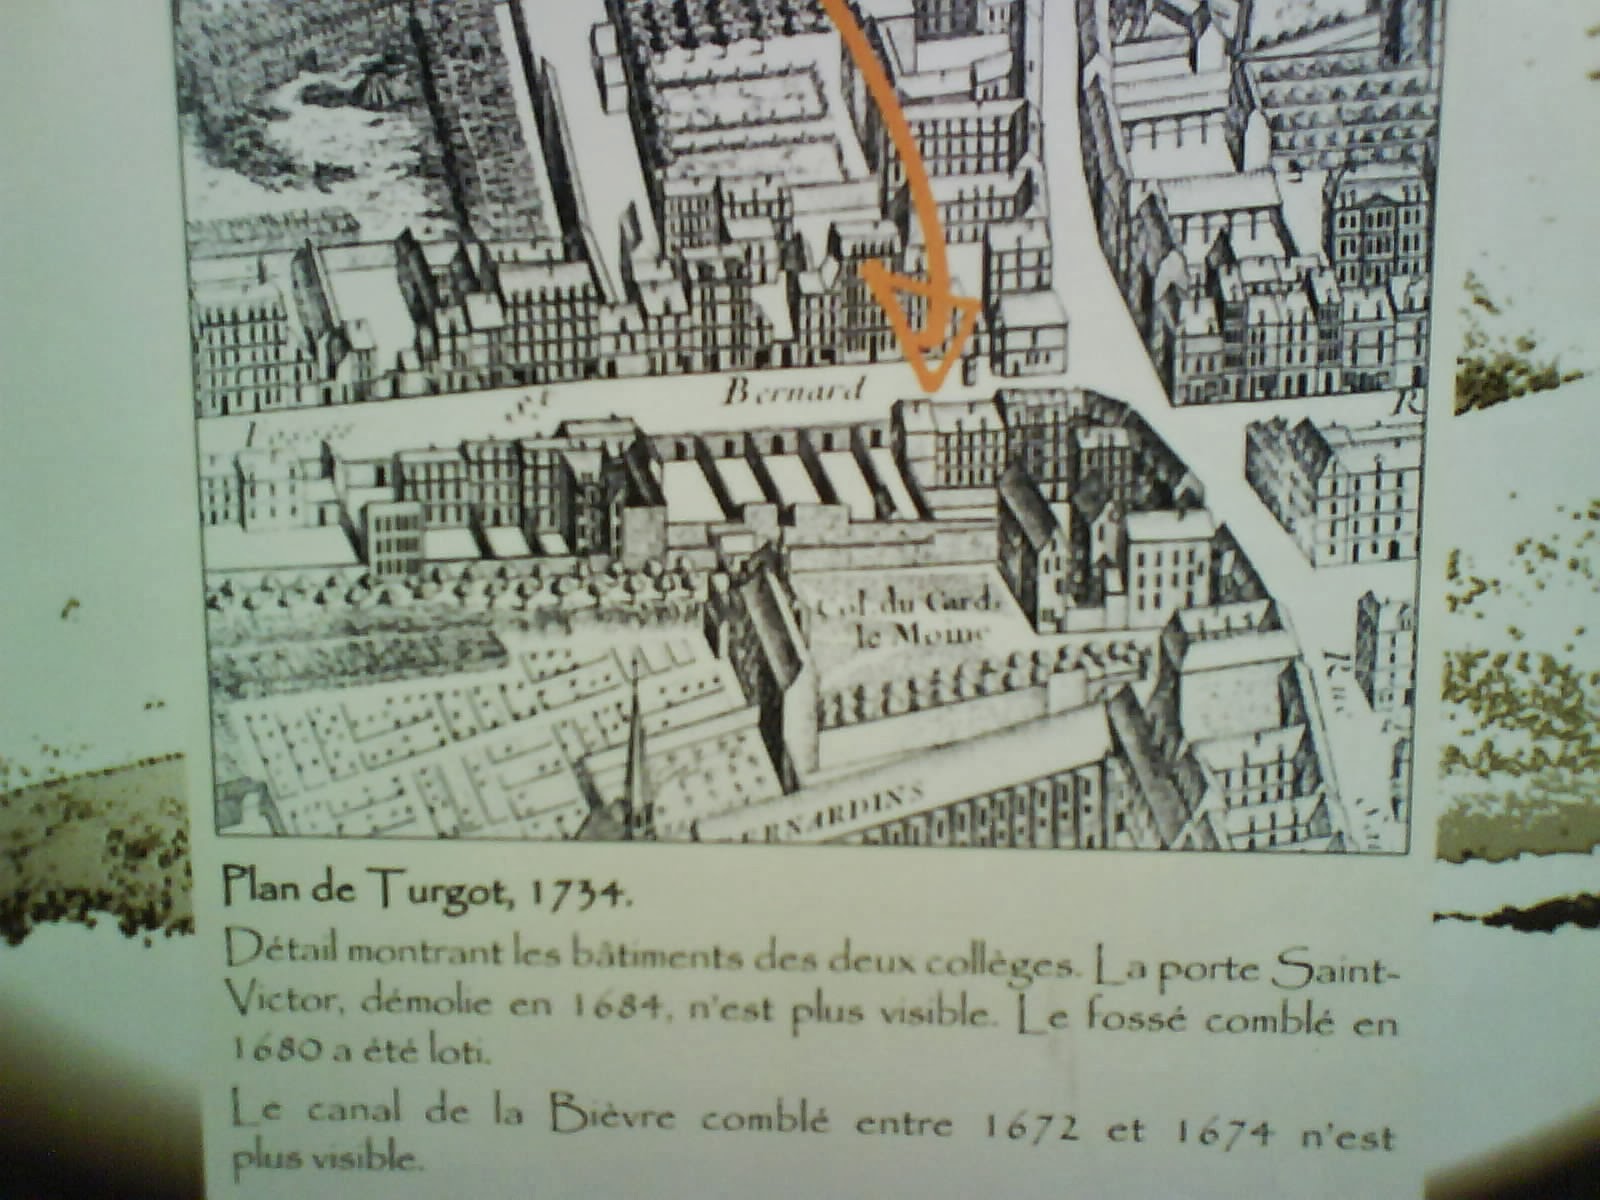 Bernard
R
Col. du Card.
le Moine
Rue
ERNARDINS
Plan de Turgot, 1734.
Détail montrant les bâtiments des deux collèges. La porte Saint-
Victor, démolie en 1684, n'est plus visible. Le fossé comblé en
1680 a été loti.
Le canal de la Bièvre comblé entre 1672 et 1674 n'est
plus visible.